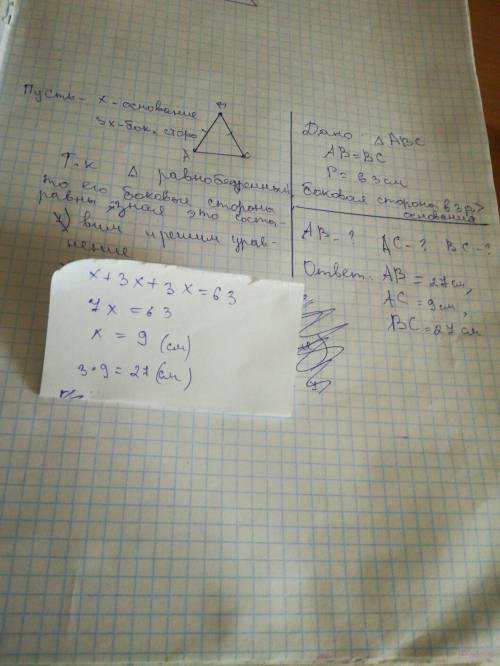 Пусть - x - основание
3x - бок. сторо
B
A
C
Т.к Δ равнобедренный
то его боковые стороны
равны, зная это соста-
вим и решим урав-
нение
x + 3x + 3x = 63
7x = 63
x = 9 (см)
3·9 = 27 (см)
Дано Δ ABC
AB = BC
P = 63 см
Боковая сторона в 3 р. >
основания
AB - ? AC - ? BC - ?
Ответ: AB = 27 см,
AC = 9 см,
BC = 27 см